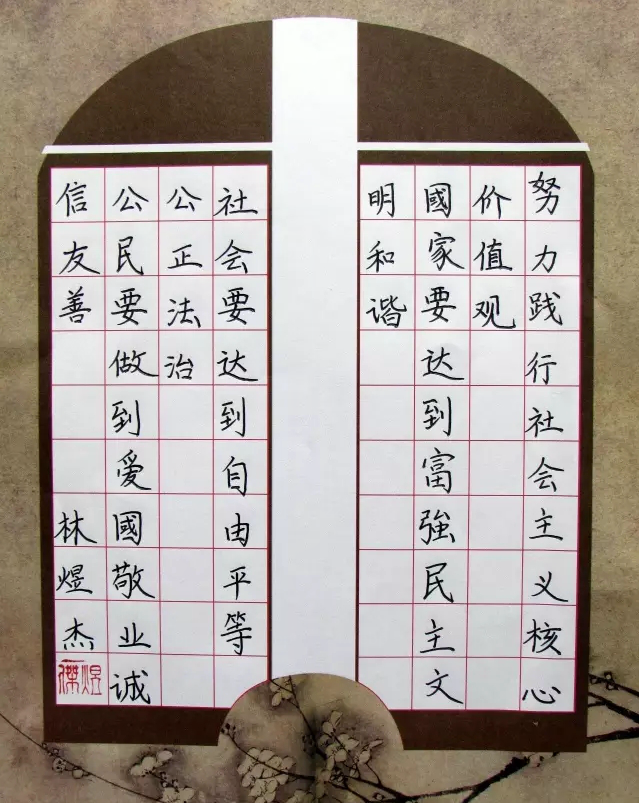 努力践行社会主义核心
价值观
國家要达到富強民主文
明和谐
社会要达到自由平等
公正法治
公民要做到爱國敬业诚
信友善
林煜杰
煜傑